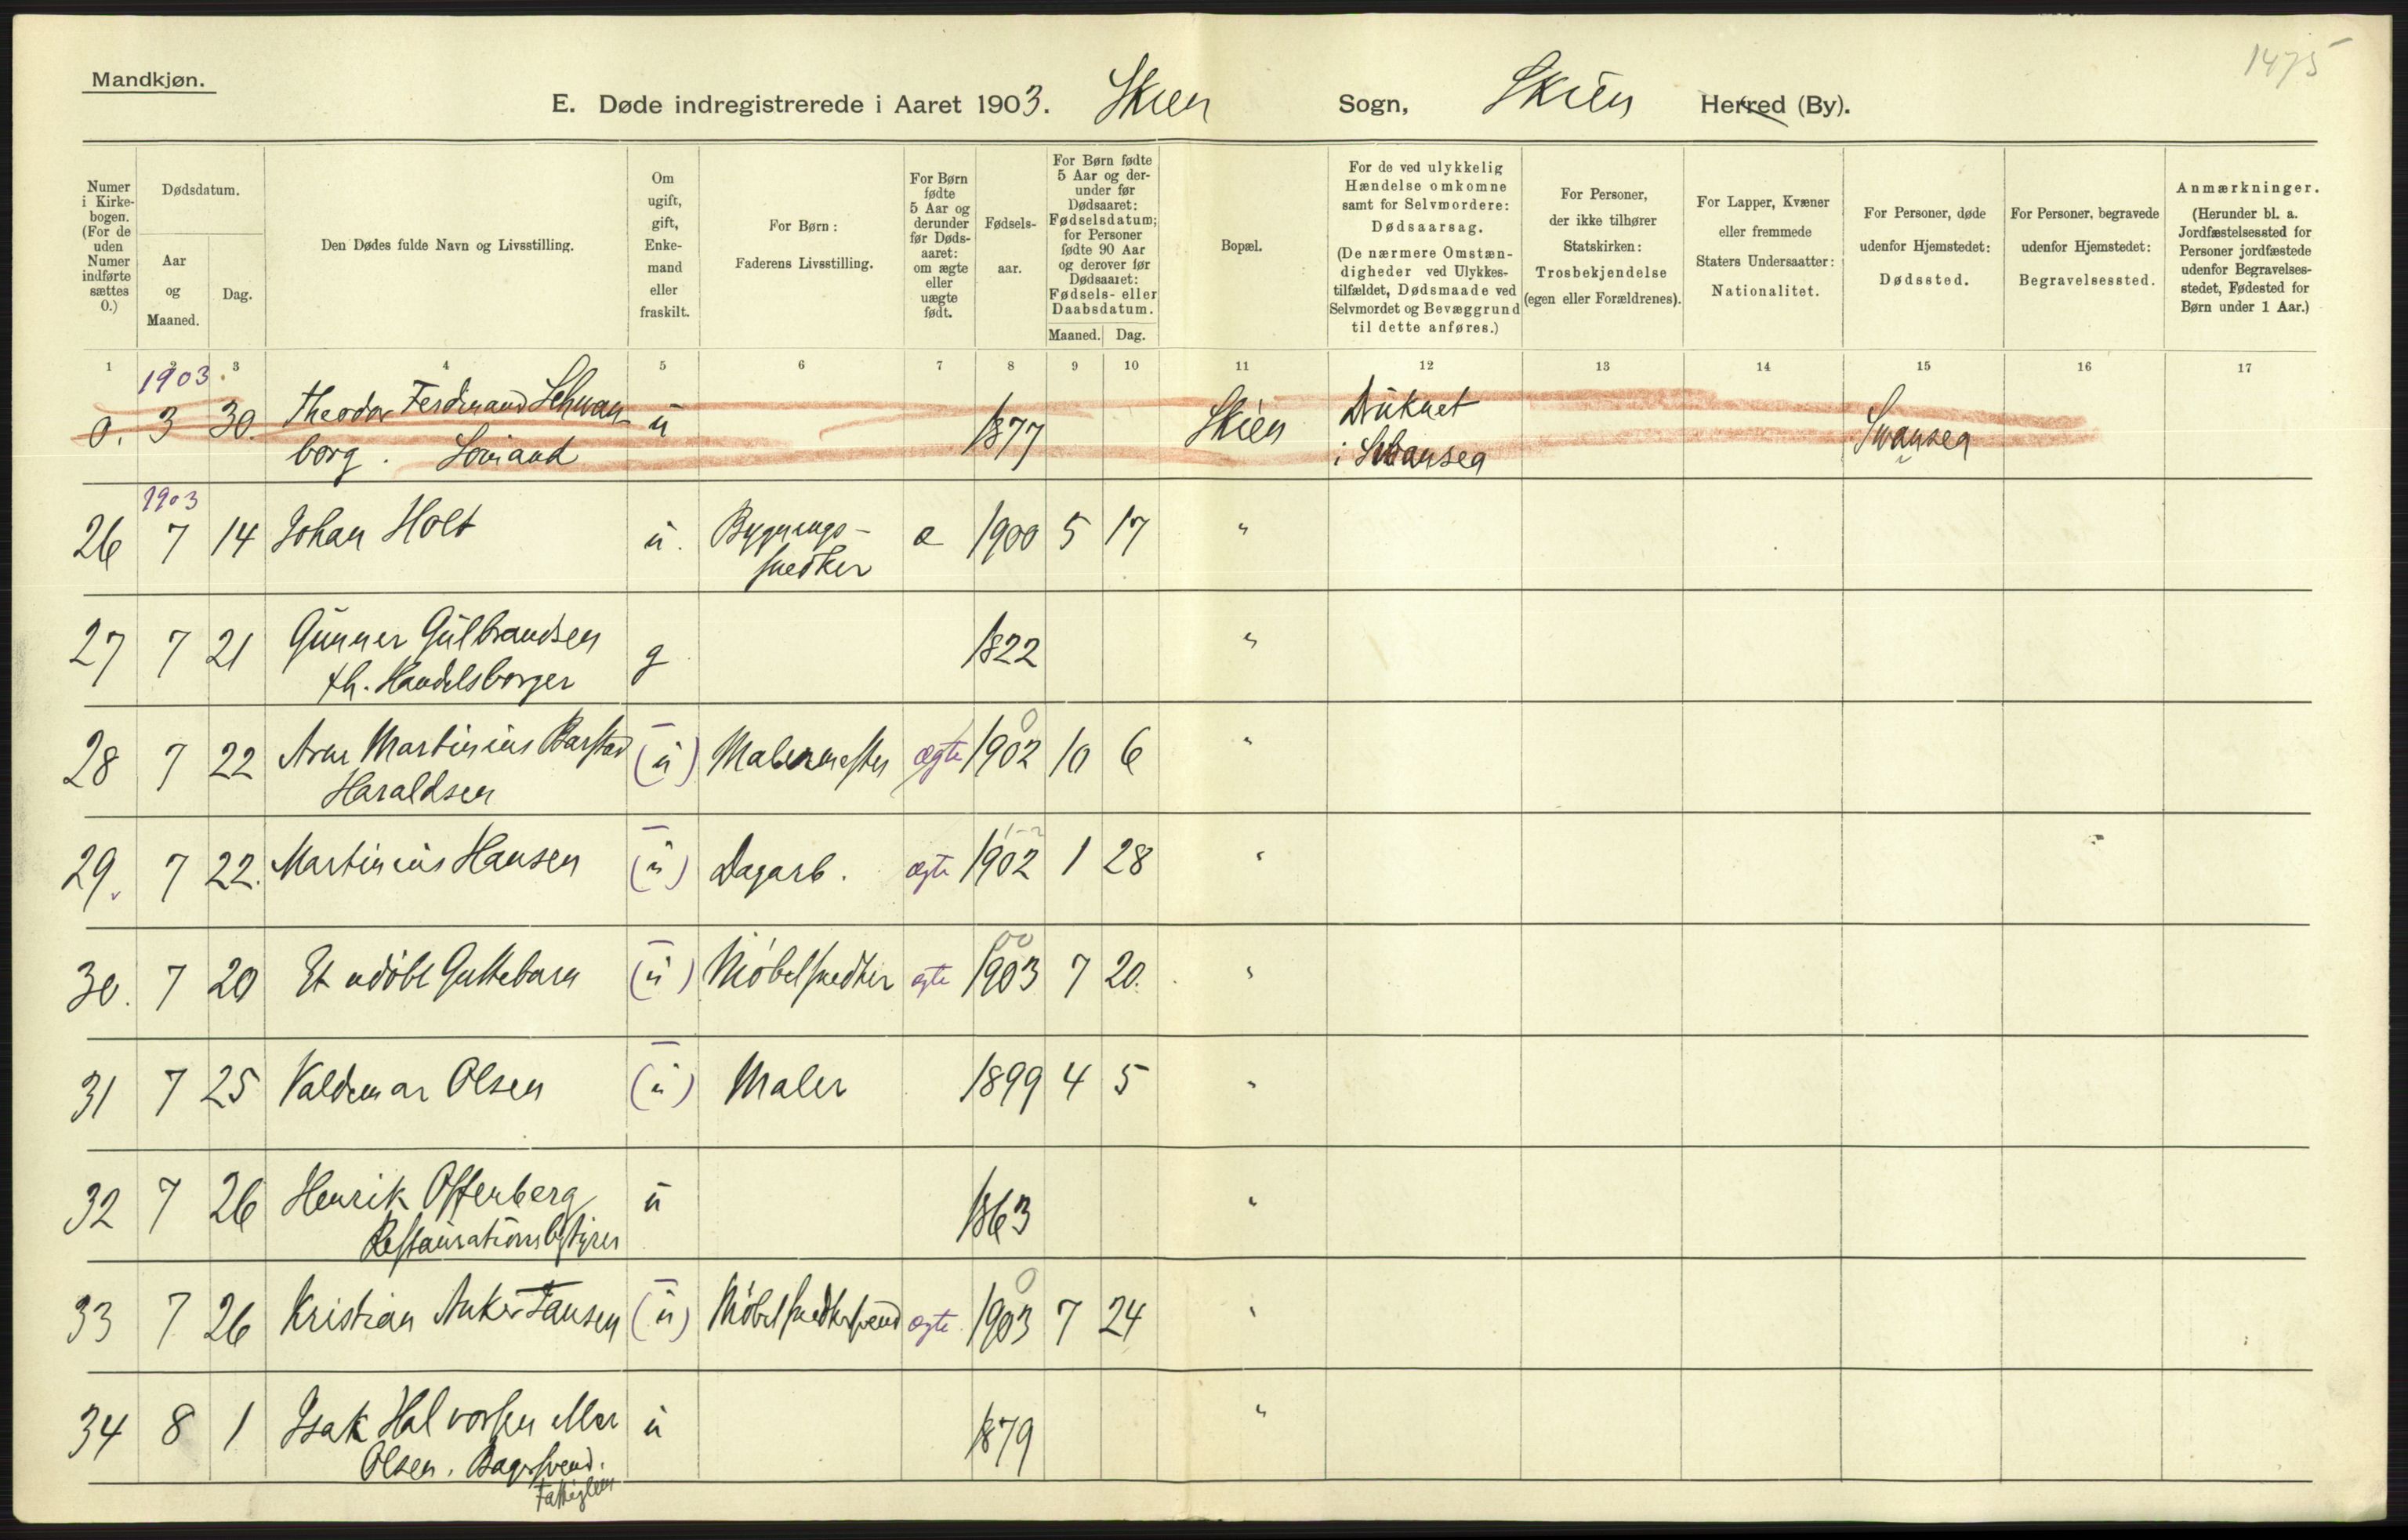 1475
Mandkjøn.
E. Døde indregistrerede i Aaret 1903. Skien Sogn, Skien Herred (By).
Numer i Kirkebogen. (For de uden Numer indførte sættes 0.)
Dødsdatum.
Aar og Maaned.
Dag.
Den Dødes fulde Navn og Livsstilling.
Om ugift, gift, Enkemand eller fraskilt.
For Børn:
Faderens Livsstilling.
For Børn fødte 5 Aar og derunder før Dødsaaret: om ægte eller uægte født.
Fødselsaar.
For Børn fødte 5 Aar og derunder før Dødsaaret: Fødselsdatum; for Personer fødte 90 Aar og derover før Dødsaaret: Fødsels- eller Daabsdatum.
Maaned. Dag.
Bopæl.
For de ved ulykkelig Hændelse omkomne samt for Selvmordere: Dødsaarsag.
(De nærmere Omstændigheder ved Ulykkestilfældet, Dødsmaade ved Selvmordet og Bevæggrund til dette anføres.)
For Personer, der ikke tilhører Statskirken: Trosbekjendelse (egen eller Forældrenes).
For Lapper, Kvæner eller fremmede Staters Undersaatter: Nationalitet.
For Personer, døde udenfor Hjemstedet: Dødssted.
For Personer, begravede udenfor Hjemstedet: Begravelsessted.
Anmærkninger.
(Herunder bl. a. Jordfæstelsessted for Personer jordfæstede udenfor Begravelsesstedet, Fødested for Børn under 1 Aar.)
1 2 3 4 5 6 7 8 9 10 11 12 13 14 15 16 17
1903
0. 3 30. Theodor Ferdinand Schwan- u 1877 Skien Druknet Swansea
borg. Sömand i Swansea
1903
26 7 14 Johan Holt u. Bygnings- æ 1900 5 17 "
snedker
27 7 21 Gunner Gulbrandsen g 1822 "
fh. Handelsborger
28 7 22 Arne Martinius Barstad (u) Malermester ægte 1902 10 6 "
Haraldsen
29. 7 22. Martinius Hansen (u) Dagarb. ægte 1902 1 28 "
30. 7 20 Et udöbt Guttebarn (u) Möbelsnedker ægte 1903 7 20. "
31 7 25 Valdemar Olsen (u) Maler 1899 4 5 "
32 7 26 Henrik Offenberg u 1863 "
Restaurationsbestyrer
33 7 26 Kristian Anker Jansen (u) Möbelsnedkersvend ægte 1903 7 24 "
34 8 1 Isak Halvorsen eller u 1879 "
Olsen. Bagersvend.
Fattiglem